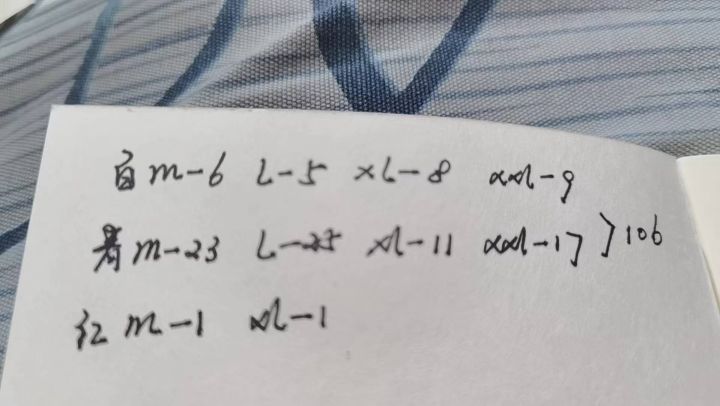 白 m-6 L-5 xL-8 xxl-9
m-23 L-25 xl-11 xxl-17 } 106
红 m-1 xl-1